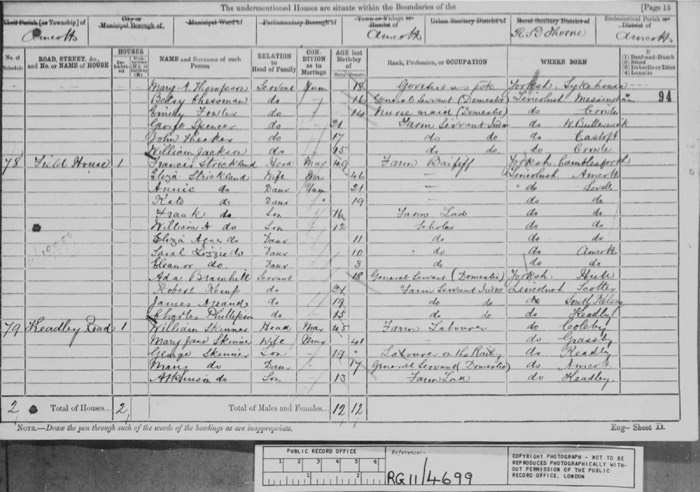 The undermentioned Houses are situate within the Boundaries of the [Page 15
Civil Parish [or Township] of City or Municipal Borough of Municipal Ward of Parliamentary Borough of Town or Village or Hamlet of Urban Sanitary District of Rural Sanitary District of Ecclesiastical Parish or District of
Amcotts Amcotts R S D Thorne Amcotts
No. of Schedule ROAD, STREET, &c., and No. or NAME of HOUSE HOUSES NAME and Surname of each Person RELATION to Head of Family CONDITION as to Marriage AGE last Birthday of Rank, Profession, or OCCUPATION WHERE BORN
94
Mary A Thompson Servant Unm 18 Yorksh. Sykehouse
Betsy do 16 General Servant (Domestic) Lincolnsh Messingham
Emily Fowler do 14 Nurse maid (Domestic) do Crowle
Spencer do 21 Farm Servant Indoor do W. Butterwick
John do 17 do do do Eastoft
William Jackson do 15 do do do Crowle
78 Field House 1 Francis Strickland Head Mar 49 Farm Bailiff Yorksh. Camblesforth
Eliza Strickland Wife Mar 46 Lincolnsh Amcotts
Annie do Daur Unm 21 do
Kate do Daur 19 do do
Frank do Son 14 Farm Lad do do
William H do Son 12 Scholar do do
Eliza Agnes do Daur 11 do do do
Sarah Lizzie do Daur 10 do do Amcotts
Eleanor do Daur 3 do do do
Ada Bramhill Servant 18 General Servant (Domestic) Yorksh. Hull
Robert Kemp do 21 Farm Servant Indoor Lincolnsh Scotter
James do 19 do do do South Kelsey
Charles do 15 do do do Keadby
79 Keadby Road 1 William Skinner Head Mar 45 Farm Labourer do Coleby
Mary Jane Skinner Wife Mar 41 do Grassby
George Skinner Son 19 Labourer on the Railwy do Keadby
Mary do Daur 17 General Servant (Domestic) do Amcotts
Atkinson do Son 13 Farm Lad do Keadby
2 Total of Houses... 2 Total of Males and Females... 12 12
NOTE.—Draw the pen through such of the words of the headings as are inappropriate. Eng—Sheet D.
PUBLIC RECORD OFFICE
1 2 3 4 5 6
Reference:-
RG11/4699
COPYRIGHT PHOTOGRAPH - NOT TO BE
REPRODUCED PHOTOGRAPHICALLY WITH-
OUT PERMISSION OF THE PUBLIC
RECORD OFFICE, LONDON